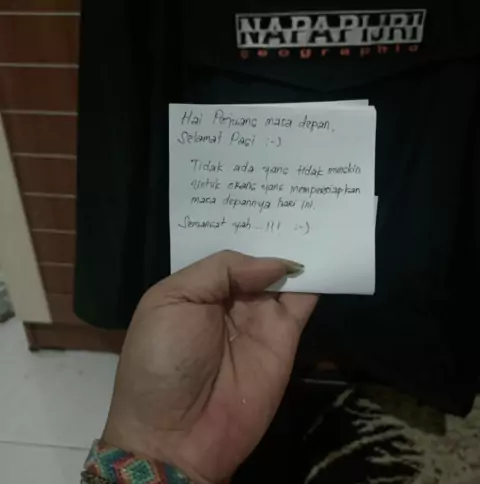 NAPAPIJRI
geographic
Hai Pejuang masa depan,
Selamat Pagi :-)
Tidak ada yang tidak mungkin
untuk orang yang mempersiapkan
masa depannya hari ini.
Semangat yah...!!! :-)